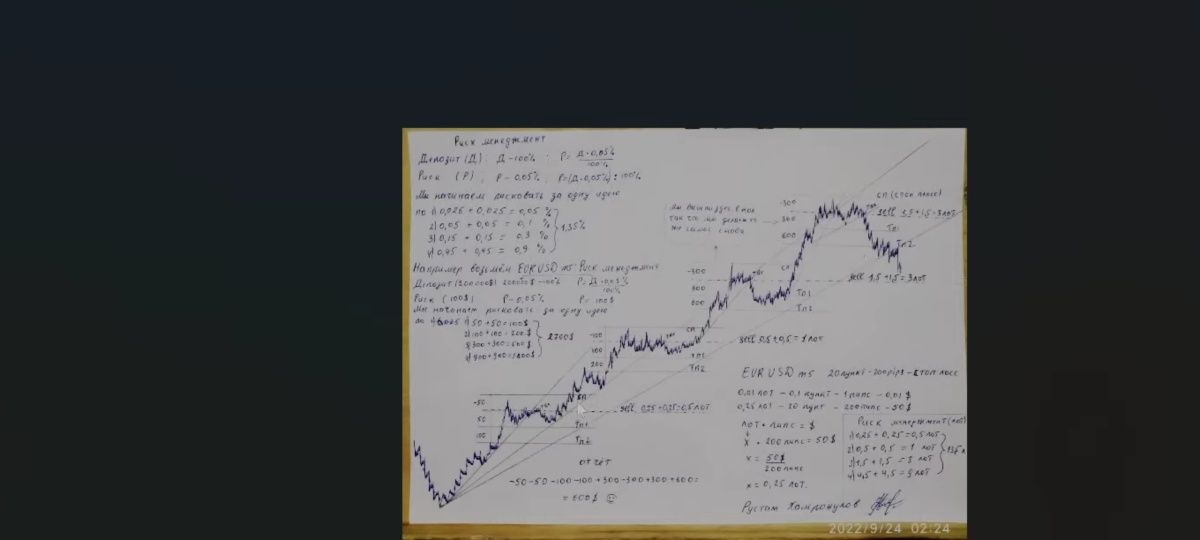 Риск менеджмент
Депозит (Д) ; Д - 100% ; Р = Д · 0,05% / 100%
Риск (Р) ; Р - 0,05% ; Р=(Д · 0,05%) : 100%
Мы начинаем рисковать за одну идею
по 1) 0,025 + 0,025 = 0,05 %
2) 0,05 + 0,05 = 0,1 %
3) 0,15 + 0,15 = 0,3 %
4) 0,45 + 0,45 = 0,9 %
1,35%
Например возьмём EURUSD m5 Риск менеджмент
Депозит (200000$) 200000$ - 100%
Риск (100$) Р - 0,05% Р = 100$
Мы начинаем рисковать за одну идею
по 1) 50 + 50 = 100$
2) 100 + 100 = 200$
3) 300 + 300 = 600$
2700$
-50
50
100
СЛ
Тп1
sell 0,25 + 0,25 = 0,5 лот
-100
100
200
СЛ
Тп1
Тп2
sell 0,5 + 0,5 = 1 лот
-300
300
600
СЛ
Тп1
Тп2
sell 1,5 + 1,5 = 3 лот
-300
300
600
СЛ (стоп лосс)
sell 1,5 + 1,5 = 3 лот
Тп1
Тп2
отчёт
-50 -50 -100 -100 +300 -300 +300 +600 =
= 600$
EURUSD m5 20 пункт - 200 pips - стоп лосс
0,01 лот - 0,1 пункт - 1 пипс - 0,01 $
0,25 лот - 20 пунт - 200 пипс - 50 $
лот · пипс = $
x · 200 пипс = 50$
x = 50$ / 200 пипс
x = 0,25 лот.
Риск менеджмент (лот)
1) 0,25 + 0,25 = 0,5 лот
2) 0,5 + 0,5 = 1 лот
3) 1,5 + 1,5 = 3 лот
4) 4,5 + 4,5 = 9 лот
Рустам
2022/9/24 02:24